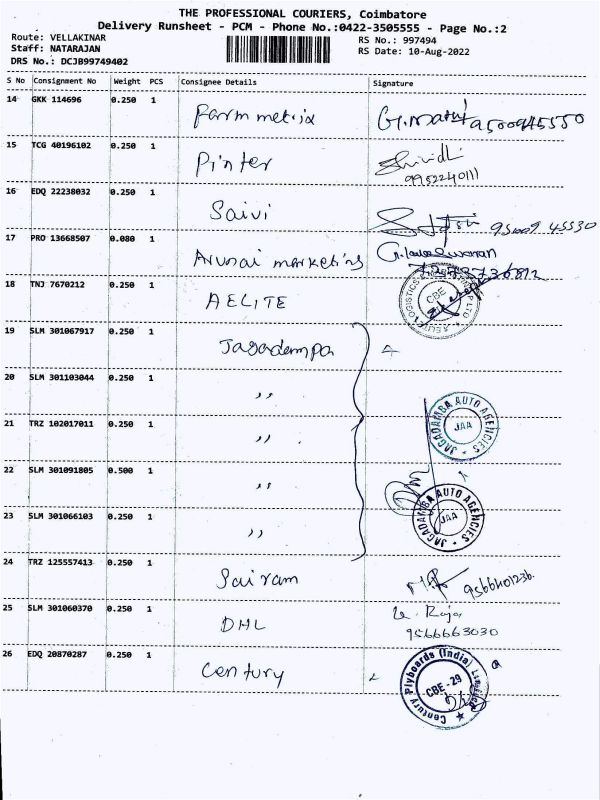 THE PROFESSIONAL COURIERS, Coimbatore
Delivery Runsheet - PCM - Phone No.:0422-3505555 - Page No.:2
Route: VELLAKINAR
RS No.: 997494
Staff: NATARAJAN
RS Date: 10-Aug-2022
DRS No.: DCJB99749402
S No Consignment No Weight PCS Consignee Details Signature
14 GKK 114696 0.250 1 Parm metrix
15 TCG 40196102 0.250 1 Pinter
9952240111
16 EDQ 22238032 0.250 1 Saivi
95009 45530
17 PRO 13668507 0.080 1 Arunai marketing
18 TNJ 7670212 0.250 1 AELITE
CBE
19 SLM 301067917 0.250 1 Jagadempa 4
20 SLM 301103044 0.250 1 ,,
JAGADAMBA AUTO AGENCIES
JAA
21 TRZ 102017011 0.250 1 ,,
22 SLM 301091805 0.500 1 ,,
JAGADAMBA AUTO AGENCIES
JAA
23 SLM 301066103 0.250 1 ,,
24 TRZ 125557413 0.250 1 Sairam
25 SLM 301060370 0.250 1 DHL K. Raja
9566663030
26 EDQ 20870287 0.250 1 Century
Century Plyboards (India) Limited
CBE-29